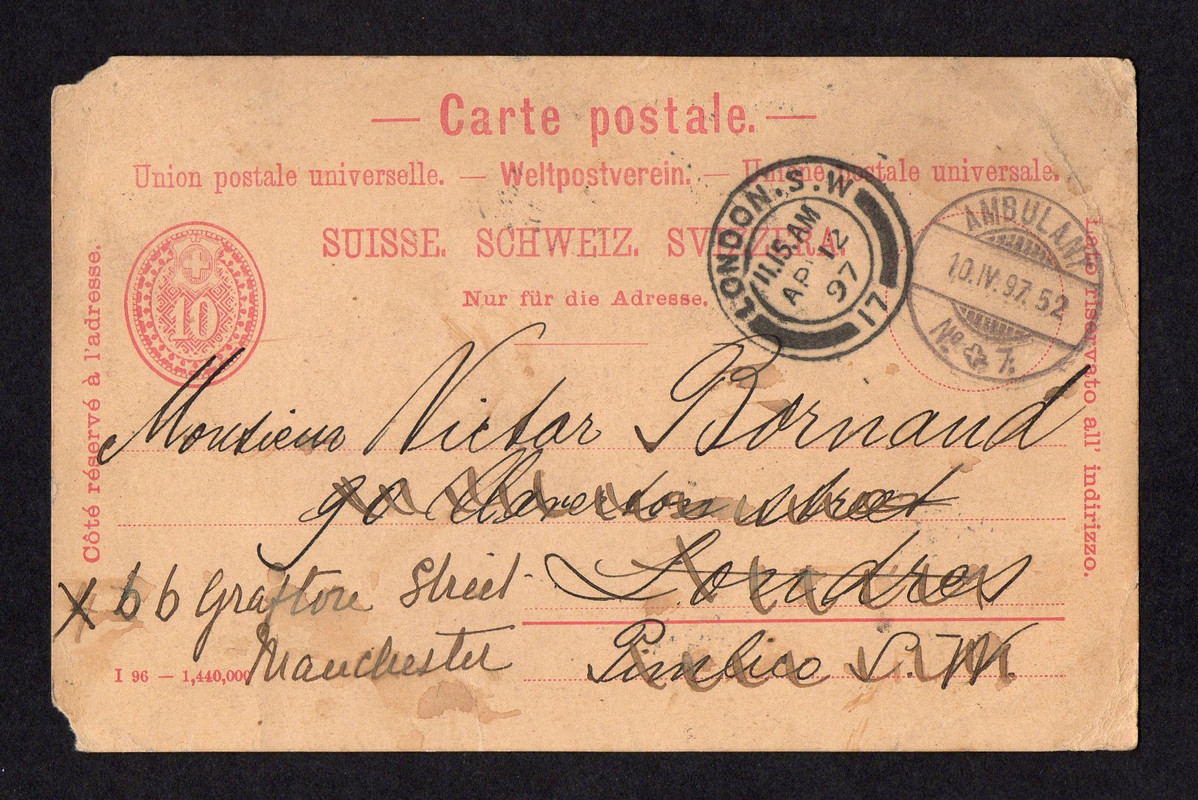 — Carte postale. —
Union postale universelle. — Weltpostverein. — Unione postale universale.
SUISSE. SCHWEIZ. SVIZZERA.
Nur für die Adresse.
Côté réservé à l'adresse.
Lato riservato all' indirizzo.
10
LONDON.S.W
11.15.AM
AP 12
97
17
AMBULANT
10.IV.97.52
No 7.
Monsieur Victor Bornand
90 Claverton street
Londres
Pimlico S.-W.
X 66 Grafton Street
Manchester
I 96 — 1,440,000